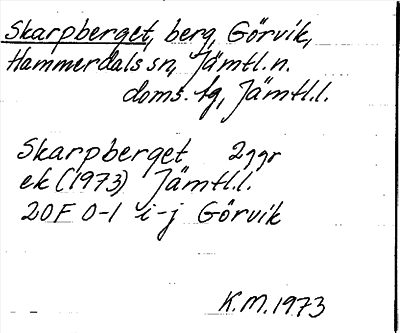 Skarpberget, berg, Görvik,
Hammerdals sn, Jämtl. n.
doms. tg, Jämtl. l.
Skarpberget 2 ggr
ek (1973) Jämtl. l.
20F 0-1 i-j Görvik
K.M. 1973